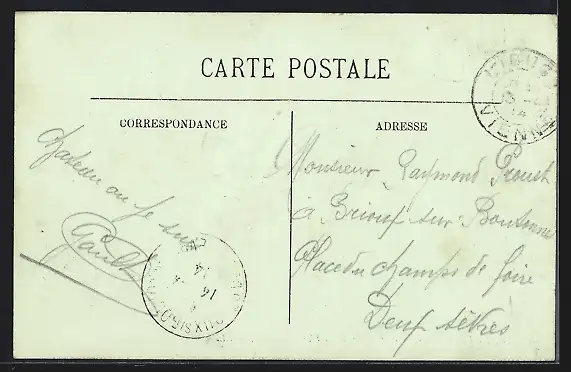 CARTE POSTALE
CORRESPONDANCE
ADRESSE
Chateau ou Je suis
Gault
Monsieur Raymond Proust
à Brioux sur Boutonne
Place du champs de foire
Deux sèvres
VIENNE